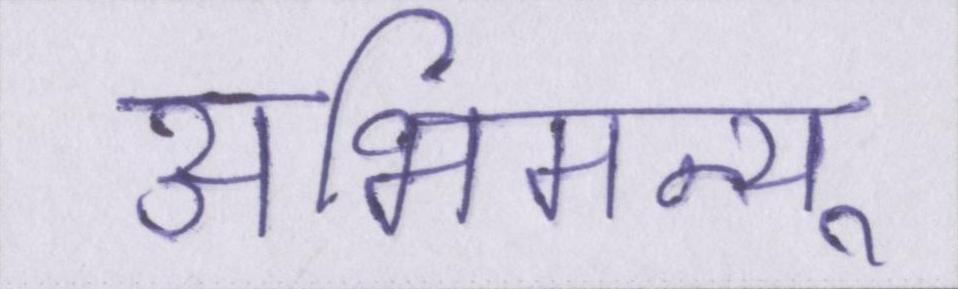 अभिमन्यू